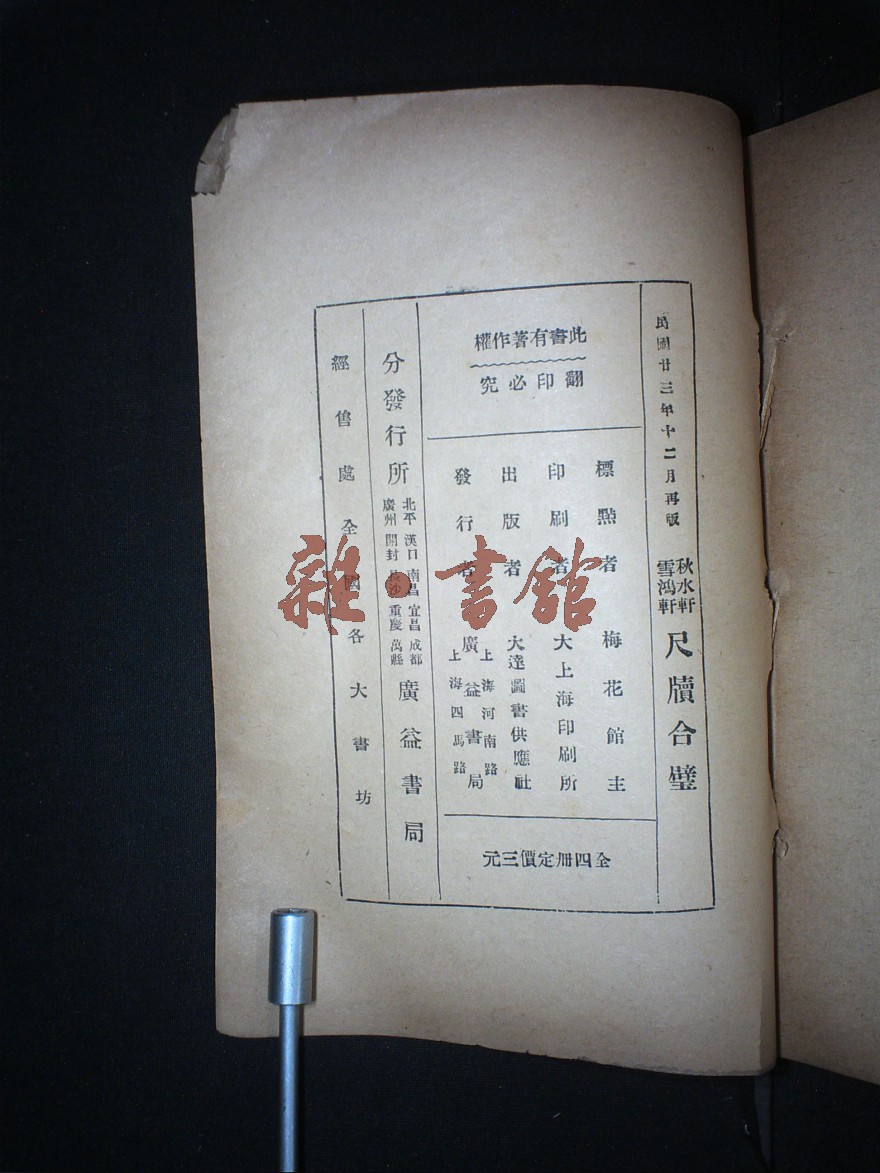 民國廿三年十二月再版
秋水軒
雪鴻軒
尺牘合璧
此書有著作權
翻印必究
標點者 梅花館主
印刷者 大上海印刷所
出版者 大達圖書供應社
發行者 廣益書局
上海河南路
上海四馬路
全四冊定價三元
分發行所
北平 漢口 南昌 宜昌 成都
廣州 開封 長沙 重慶 萬縣
廣益書局
經售處全國各大書坊
雜·書館